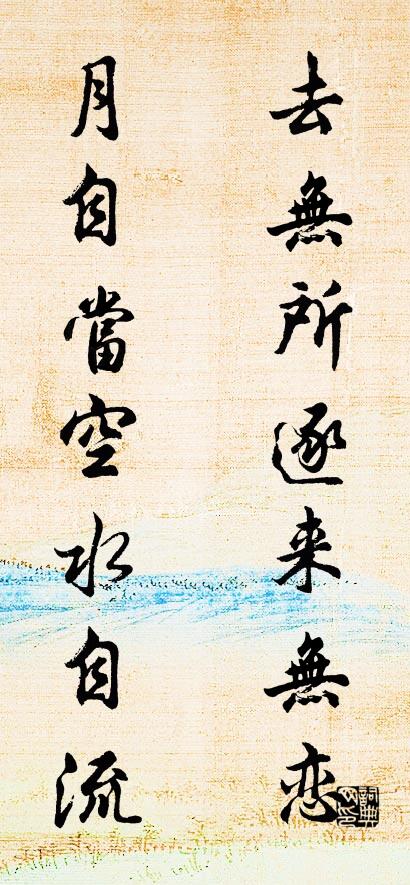 去無所逐来無恋
月自當空水自流